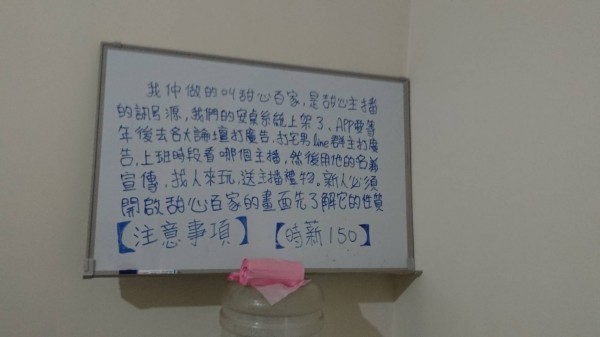 我們做的叫甜心百家，是甜心主播
的訊號源，我們的安卓系統上架了，APP要等
年後去各大論壇打廣告、打宅男line群主打廣
告，上班時段看哪個主播，然後用他的名義
宣傳，找人來玩，送主播禮物。新人必須
開啟甜心百家的畫面先了解它的性質
【注意事項】 【時薪150】